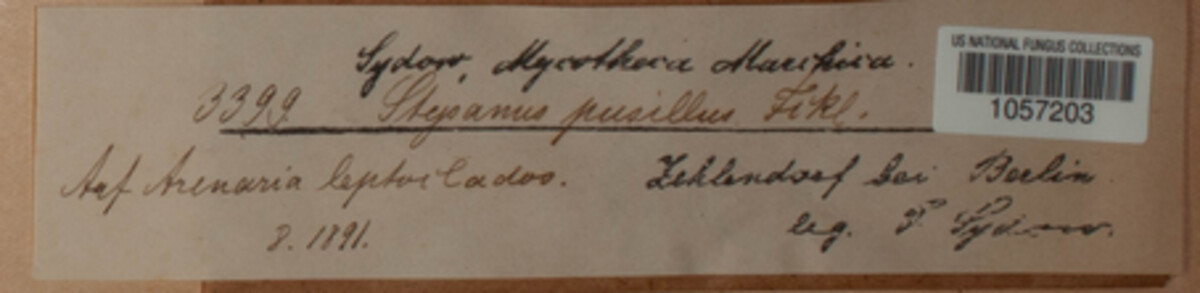 Sydow, Mycotheca Marchica.
3399 Stysanus pusillus Fckl.
Auf Arenaria leptoclados.
8. 1891.
Zehlendorf bei Berlin
leg. P Sydow.
US NATIONAL FUNGUS COLLECTIONS
1057203